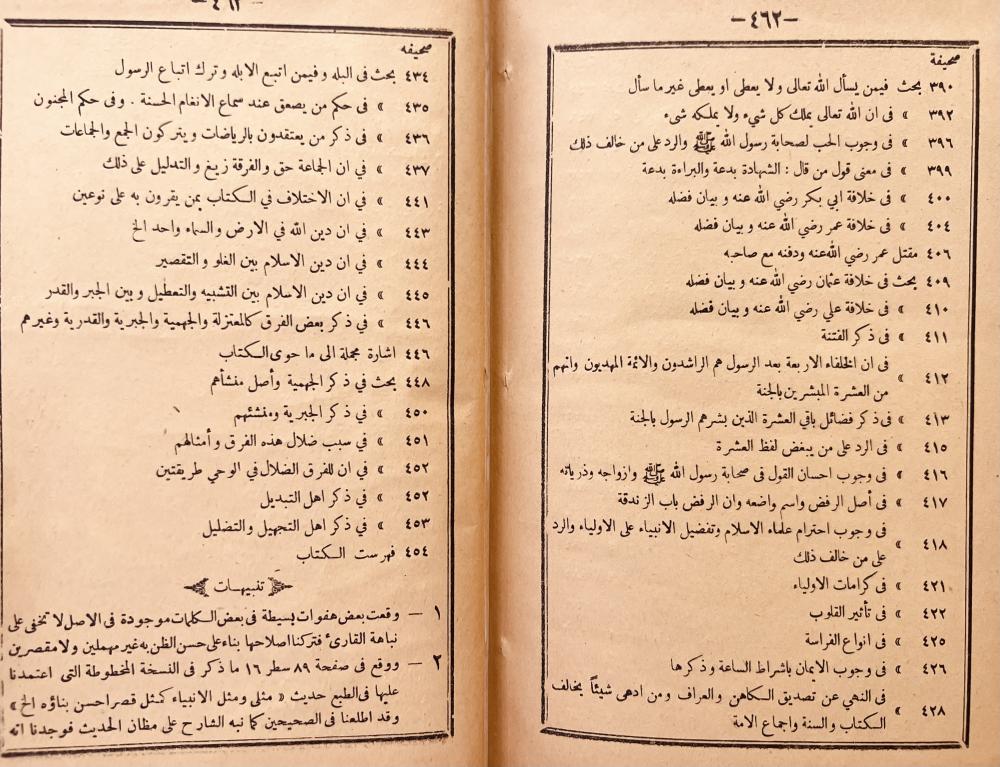 —٤٦٢—
صحيفة
٣٩٠ بحث فيمن يسأل الله تعالى ولا يعطى او يعطى غير ما سأل
٣٩٢ » فى ان الله تعالى يملك كل شيء ولا يملكه شىء
٣٩٦ » فى وجوب الحب لصحابة رسول الله ﷺ والرد على من خالف ذلك
٣٩٩ » فى معنى قول من قال : الشهادة بدعة والبراءة بدعة
٤٠٠ » فى خلافة ابي بكر رضي الله عنه وبيان فضله
٤٠٤ » فى خلافة عمر رضي الله عنه وبيان فضله
٤٠٦ مقتل عمر رضي الله عنه ودفنه مع صاحبه
٤٠٩ بحث فى خلافة عثمان رضي الله عنه وبيان فضله
٤١٠ » فى خلافة علي رضي الله عنه وبيان فضله
٤١١ » فى ذكر الفتنة
٤١٢ » فى ان الخلفاء الاربعة بعد الرسول هم الراشدون والائمة المهديون وانهم
من العشرة المبشرين بالجنة
٤١٣ » فى ذكر فضائل باقي العشرة الذين بشرهم الرسول بالجنة
٤١٥ » فى الرد على من يبغض لفظ العشرة
٤١٦ » فى وجوب احسان القول فى صحابة رسول الله ﷺ وازواجه وذرياته
٤١٧ » فى أصل الرفض واسم واضعه وان الرفض باب الزندقة
٤١٨ » فى وجوب احترام علماء الاسلام وتفضيل الانبياء على الاولياء والرد
على من خالف ذلك
٤٢١ » فى كرامات الاولياء
٤٢٢ » فى تأثير القلوب
٤٢٥ » فى انواع الفراسة
٤٢٦ » فى وجوب الايمان باشراط الساعة وذكرها
٤٢٨ » فى النهي عن تصديق الكاهن والعراف ومن ادعى شيئاً يخالف
الكتاب والسنة واجماع الامة
صحيفه
٤٣٤ بحث فى البله وفيمن اتبع الابله وترك اتباع الرسول
٤٣٥ » فى حكم من يصعق عند سماع الانغام الحسنة . وفى حكم المجنون
٤٣٦ » فى ذكر من يعتقدون بالرياضات ويتركون الجمع والجماعات
٤٣٧ » في ان الجماعة حق والفرقة زيغ والتدليل على ذلك
٤٤١ » في ان الاختلاف في الكتاب بمن يقرون به على نوعين
٤٤٣ » في ان دين الله في الارض والسماء واحد الخ
٤٤٤ » في ان دين الاسلام بين الغلو والتقصير
٤٤٥ » في ان دين الاسلام بين التشبيه والتعطيل وبين الجبر والقدر
٤٤٦ » في ذكر بعض الفرق كالمعتزلة والجهمية والجبرية والقدرية وغيرهم
٤٤٦ اشارة مجملة الى ما حوى الكتاب
٤٤٨ بحث في ذكر الجهمية وأصل منشأهم
٤٥٠ » في ذكر الجبرية ومنشئهم
٤٥١ » في سبب ضلال هذه الفرق وأمثالهم
٤٥٢ » في ان للفرق الضلال في الوحي طريقتين
٤٥٢ » في ذكر اهل التبديل
٤٥٣ » في ذكر اهل التجهيل والتضليل
٤٥٤ فهرست الكتاب
تنبيهات
١ — وقعت بعض هفوات بسيطة فى بعض الكلمات موجودة فى الاصل لا تخفى على
نباهة القارئ فتركنا اصلاحها بناء على حسن الظن به غير مهملين ولا مقصرين
٢ — ووقع فى صفحة ٨٩ سطر ١٦ ما ذكر فى النسخة المخطوطة التى اعتمدنا
عليها فى الطبع حديث « مثلى ومثل الانبياء كمثل قصر احسن بناؤه الخ »
وقد اطلعنا فى الصحيحين كما نبه الشارح على مظان الحديث فوجدنا انه